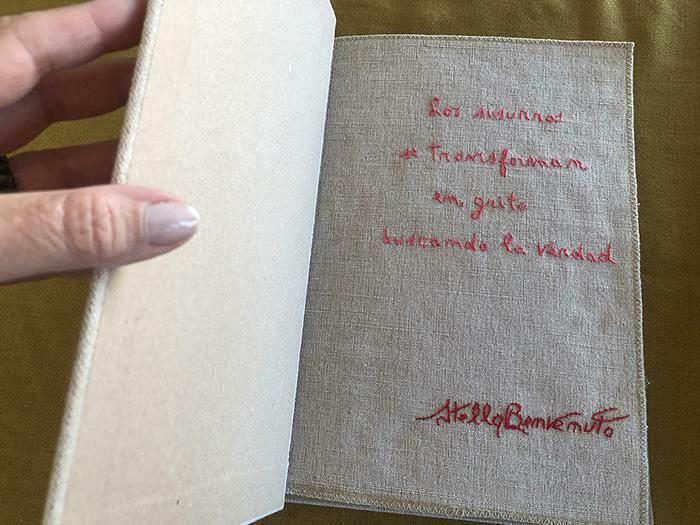 Los susurros
se transforman
en grito
buscando la verdad
Stella Benvenuto